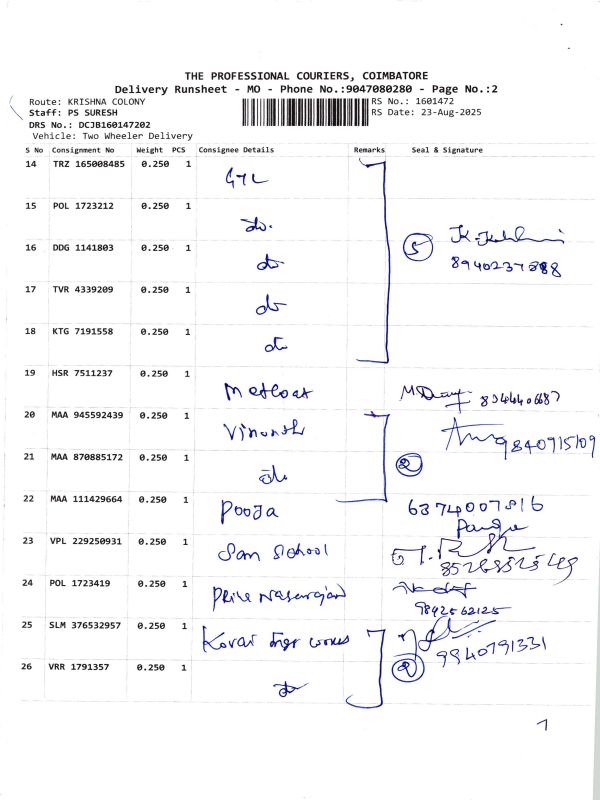 THE PROFESSIONAL COURIERS, COIMBATORE
Delivery Runsheet - MO - Phone No.:9047080280 - Page No.:2
Route: KRISHNA COLONY RS No.: 1601472
Staff: PS SURESH RS Date: 23-Aug-2025
DRS No.: DCJB160147202
Vehicle: Two Wheeler Delivery
S No Consignment No Weight PCS Consignee Details Remarks Seal & Signature
14 TRZ 165008485 0.250 1 GTL
15 POL 1723212 0.250 1 do.
16 DDG 1141803 0.250 1 do 5
17 TVR 4339209 0.250 1 do
18 KTG 7191558 0.250 1 do
19 HSR 7511237 0.250 1
20 MAA 945592439 0.250 1 840915109
21 MAA 870885172 0.250 1 do 2
22 MAA 111429664 0.250 1 Pooja 6374007816
23 VPL 229250931 0.250 1 San School
24 POL 1723419 0.250 1 9842562125
25 SLM 376532957 0.250 1 Kovai works 9940791331
26 VRR 1791357 0.250 1 do 2
1